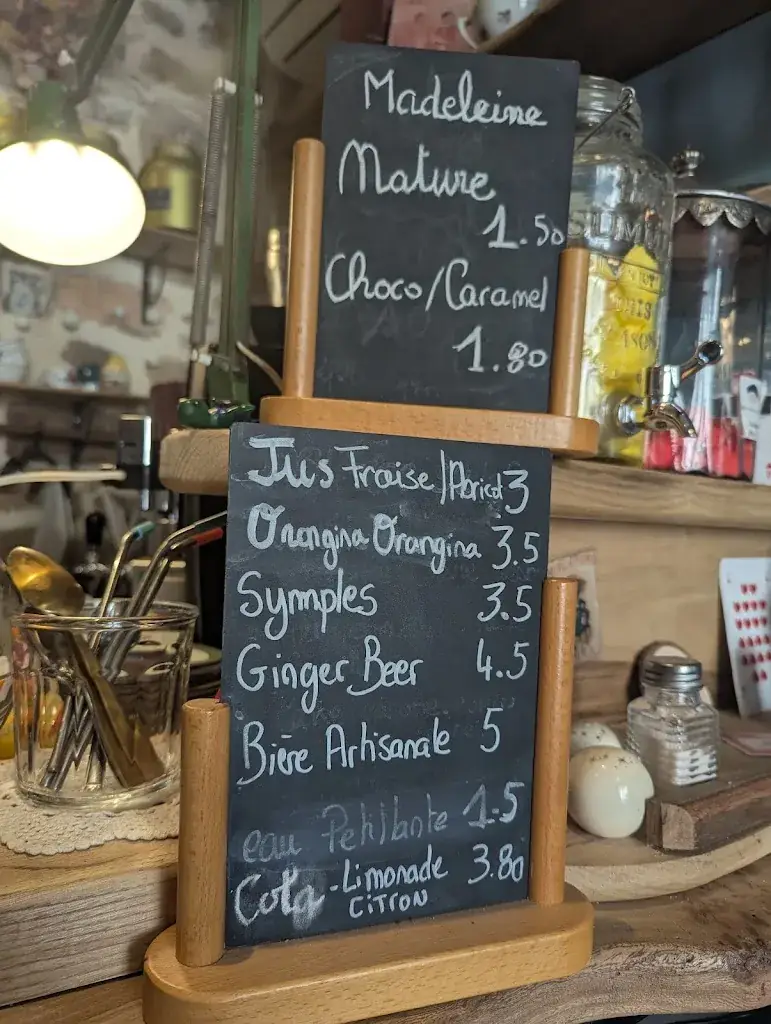 Madeleine
Mature
1.50
Choco/Caramel
1.80
Jus Fraise/Abricot 3
Orangina Orangina 3.5
Symples 3.5
Ginger Beer 4.5
Bière Artisanale 5
eau Petillante 1.5
Cola - Limonade 3.80
CITRON